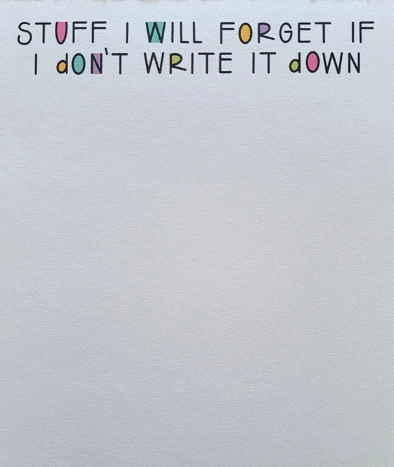 STUFF I WILL FORGET IF
I dON'T WRITE IT dOWN